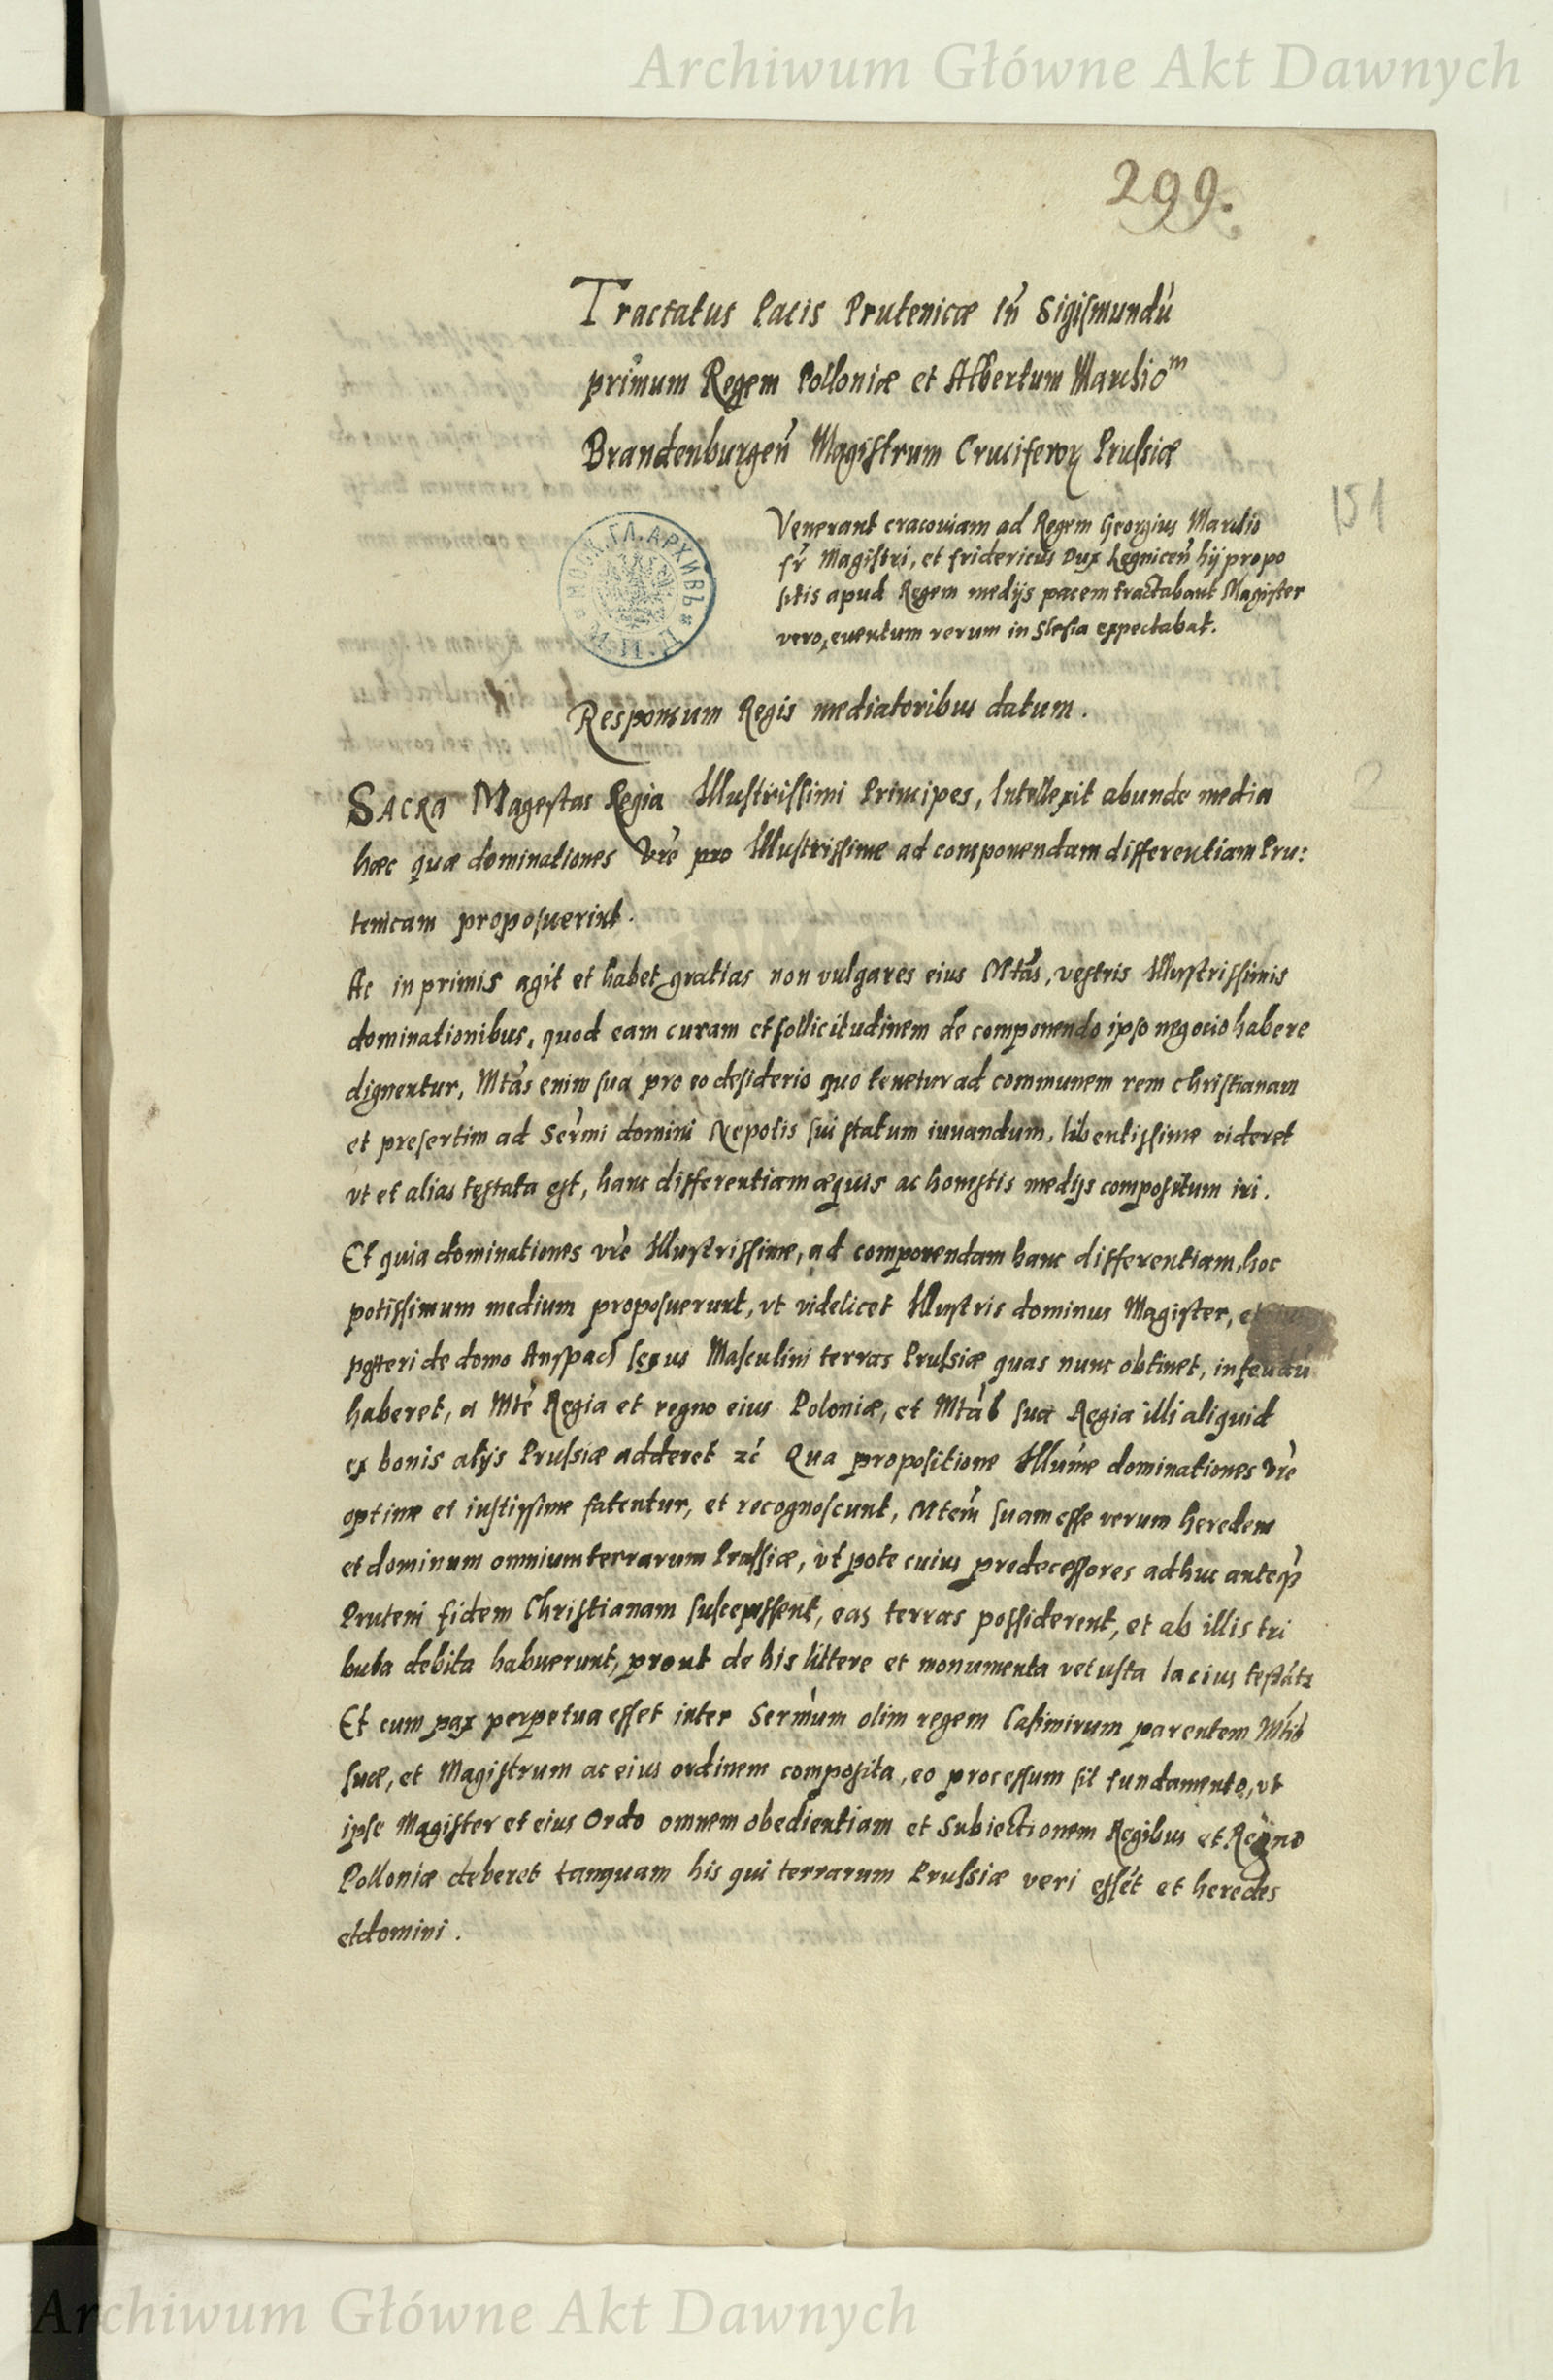 Archiwum Główne Akt Dawnych
299.
Tractatus Pacis Prutenicæ Iñ Sigismundù
primum Regem Polloniæ et Albertum Marchioᵐ
Brandenburgeñ Magistrum Cruciferoꝝ Prussiæ
151
Venerant cracoviam ad Regem Georgius Marchio
fr̃ Magistri, et fridericus Dux Legniceñ hij propo
sitis apud Regem medijs pacem tractabant Magister
vero, euentum rerum in Slesia expectabat.
МОСК. ГЛ. АРХИВЪ
Responsum Regis mediatoribus datum.
SACRA Magestas Regia Illustrissimi Principes, Intellexit abunde media
2
hæc quæ dominationes Vrẽ pro Illustrissime ad componendam differentiam Pru:
tenicam proposuerint.
Ac in primis agit et habet gratias non vulgares eius Mtãs, vestris Illustrissimis
dominationibus, quod eam curam et sollicitudinem de componendo ipso negocio habere
dignentur, Mtãs enim sua pro eo desiderio quo tenetur ad communem rem christianam
et presertim ad Serm̃i domini Nepotis sui statum iuuandum, libentissime videret
vt et alias testata est, hanc differentiam æquis ac honestis medijs compositum iri.
Et quia dominationes vrẽ Illustrissime, ad componendam hanc differentiam, hoc
potissimum medium proposuerunt, vt videlicet Illustris dominus Magister, et
posteri de domo Anspach sexus Masculini terras Prussiæ quas nunc obtinet, in feudũ
haberet, a Mtẽ Regia et regno eius Poloniæ, et Mtãs sua Regia illi aliquid
ex bonis alijs Prussiæ adderet ꝛc̃ Qua propositione Illũme dominationes Vrẽ
optime et iustissime fatentur, et recognoscunt, Mtem̃ suam esse verum heredem
et dominum omnium terrarum Prussiæ, vt pote cuius predecessores adhuc anteq̃
Pruteni fidem Christianam suscepissent, eas terras possiderent, et ab illis tri
buta debita habuerunt, prout de his littere et monumenta vetusta lacius testãtꝛ
Et cum pax perpetua esset inter Serm̃um olim regem Casimirum parentem Mt̃is
suæ, et Magistrum ac eius ordinem composita, eo processum sit fundamento, vt
ipse Magister et eius Ordo omnem obedientiam et Subiectionem Regibus et Regno
Polloniæ deberet tanquam his qui terrarum Prussiæ veri essẽt et heredes
et domini.
Archiwum Główne Akt Dawnych